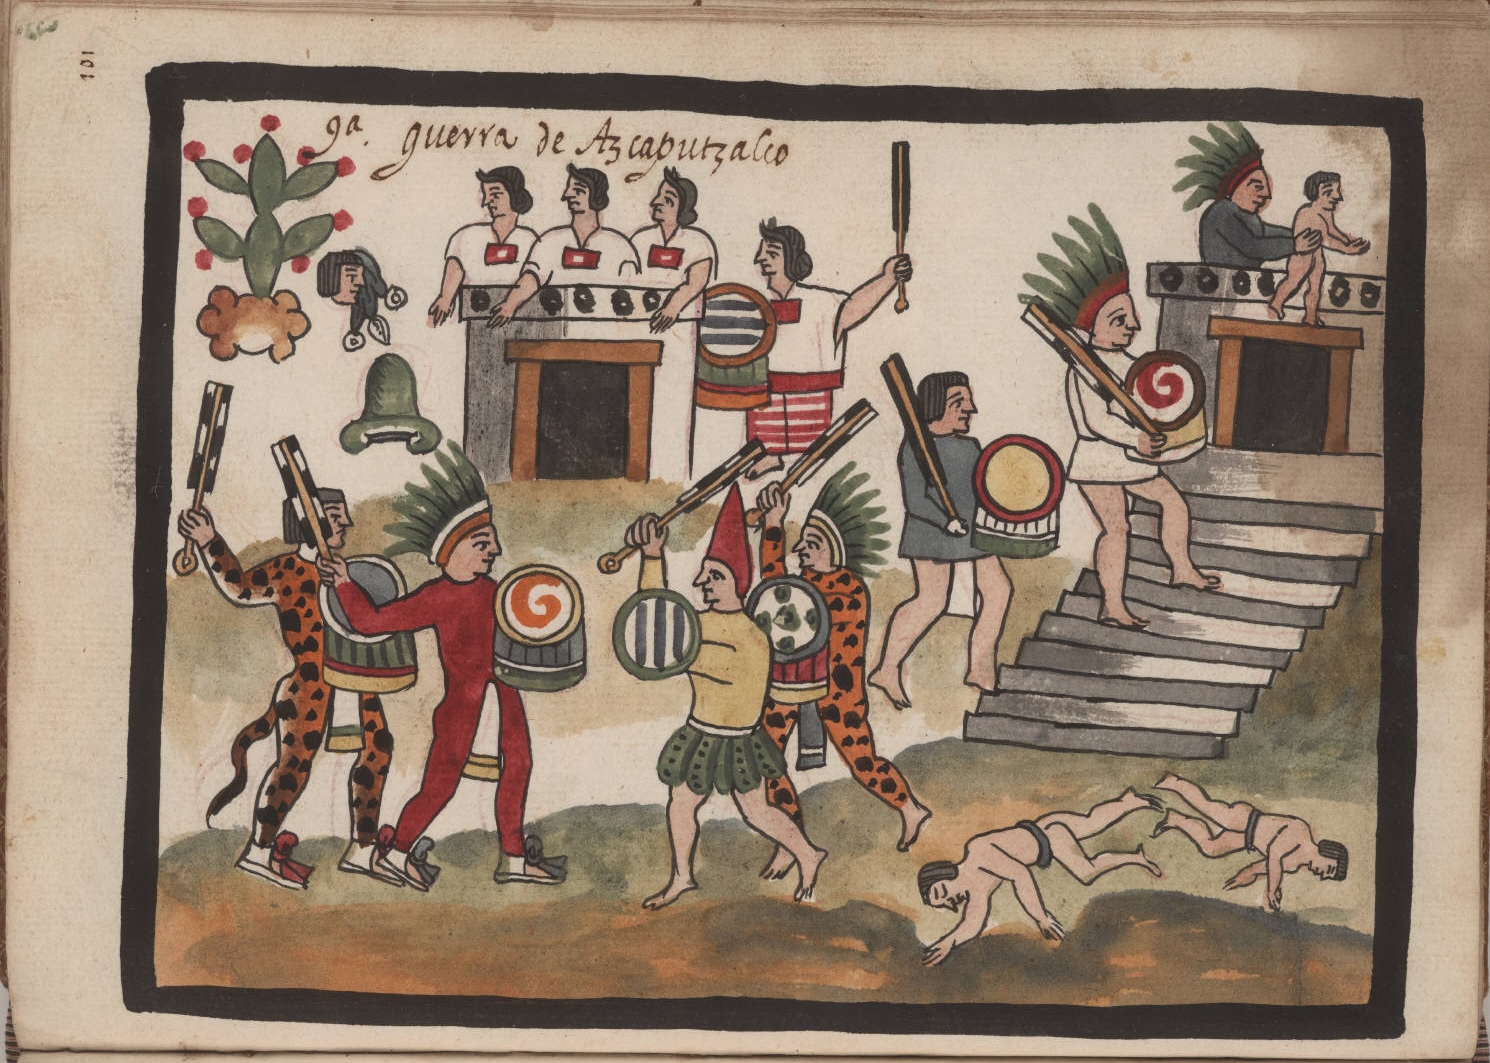 101
9a. guerra de Azcaputzalco